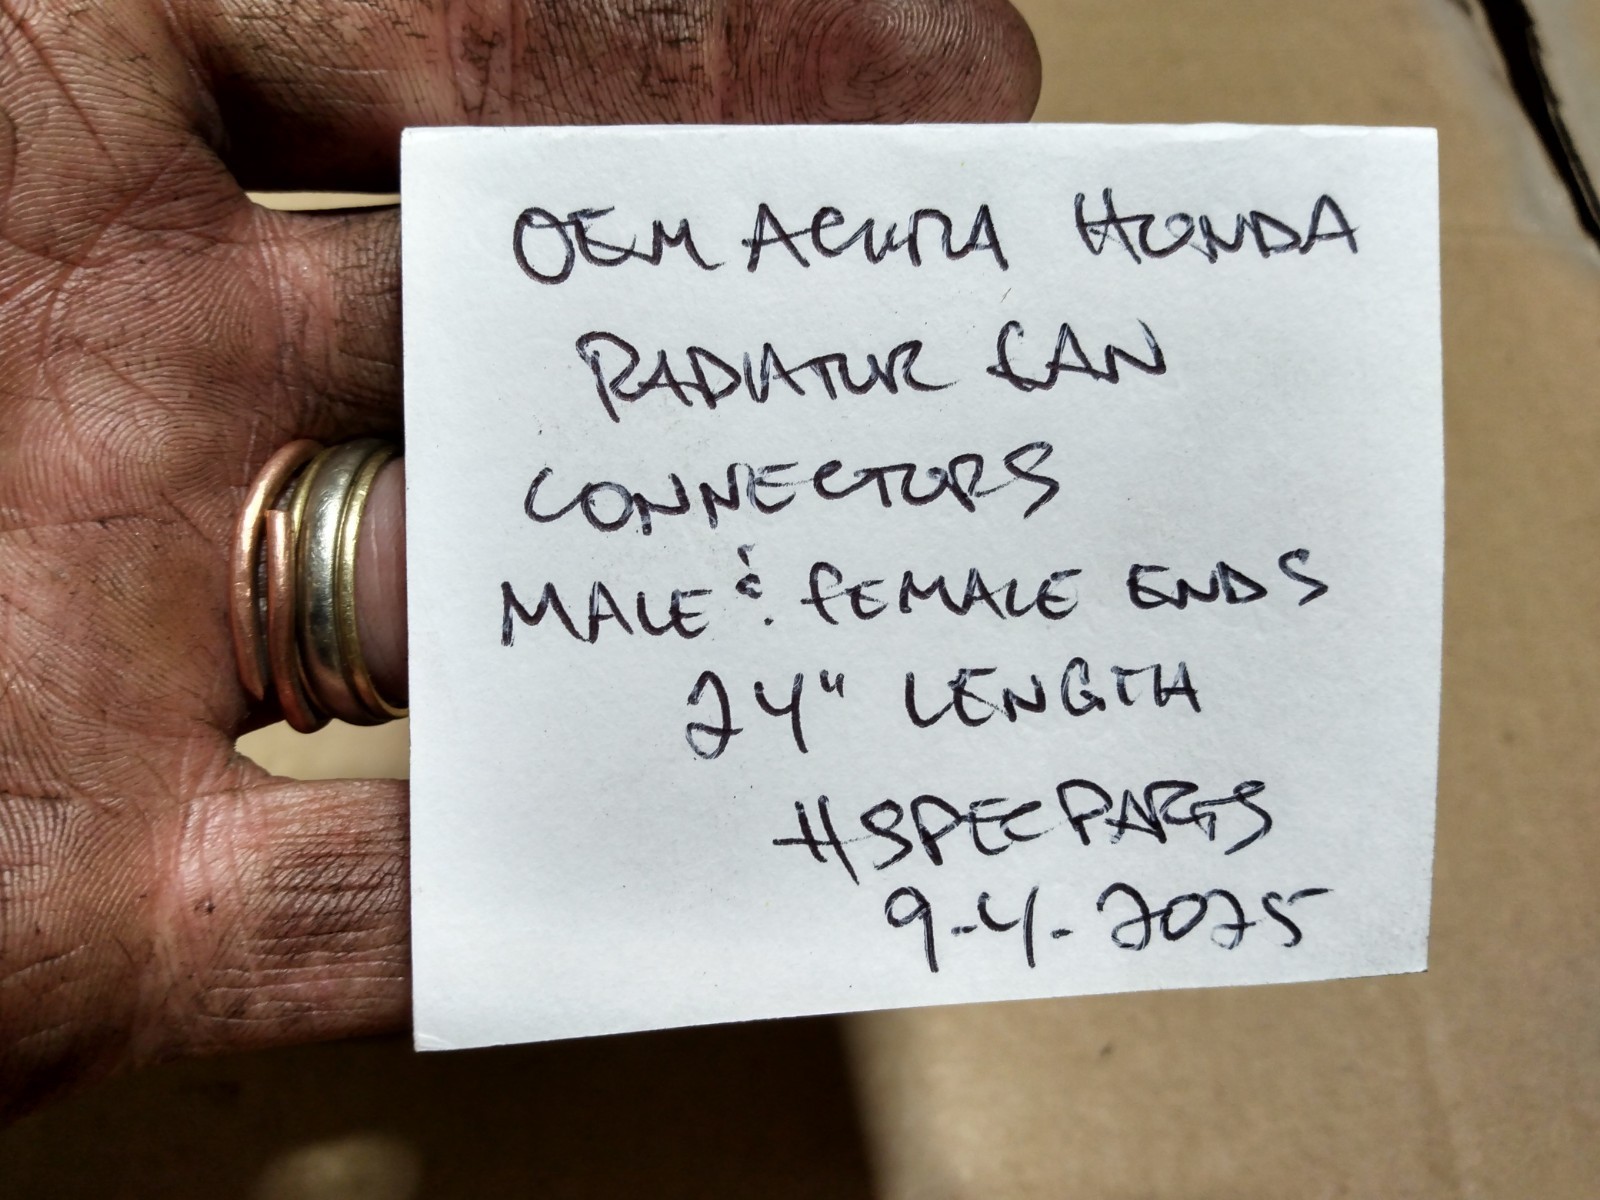 OEM ACURA HONDA
RADIATOR FAN
CONNECTORS
MALE & FEMALE ENDS
24" LENGTH
HSPECPARTS
9-4-2025